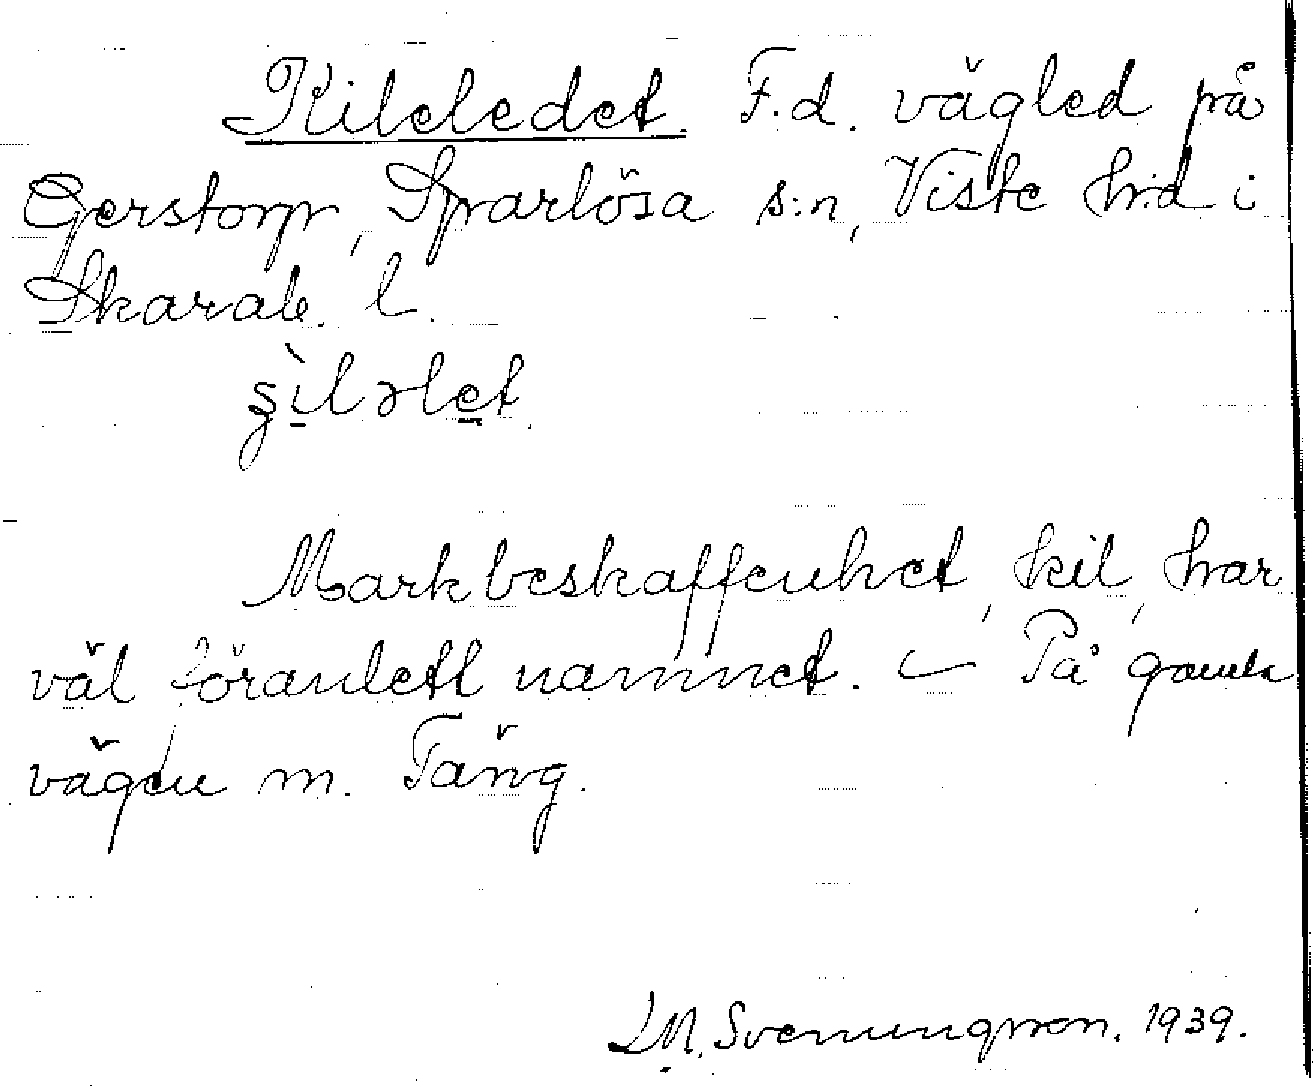 Kileledet. F.d. vägled på
Gerstorp, Sparlösa s:n, Viste h:d i
Skarab. l.
ʂìləlet.
Markbeskaffenhet, kil, har
väl föranlett namnet. – På gamla
vägen m. Täng.
M. Svenungsson. 1939.